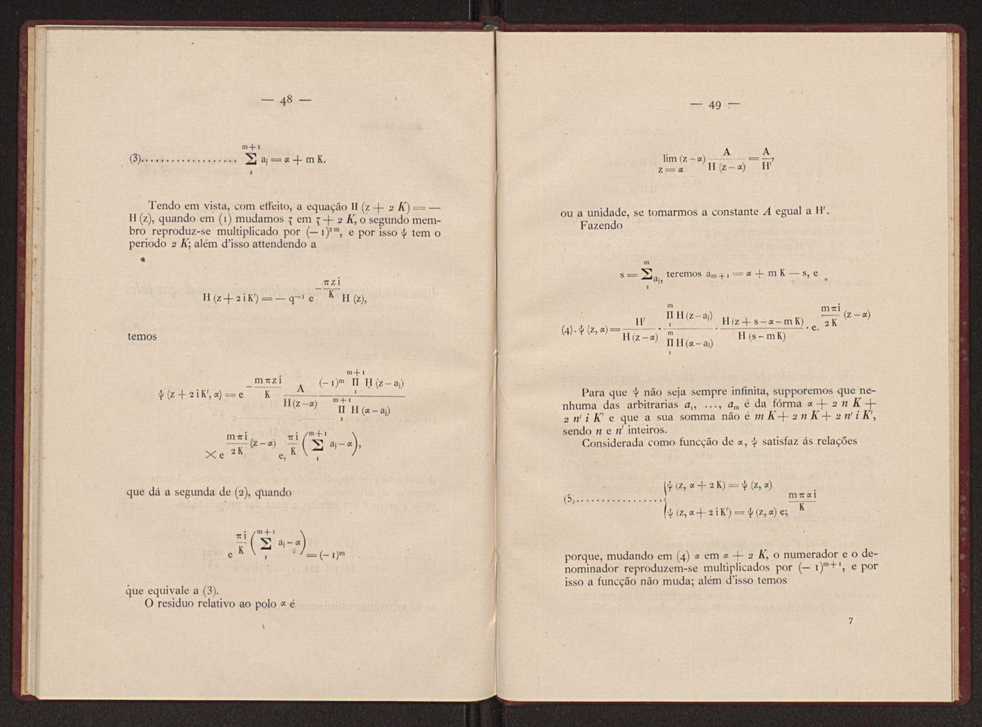 — 48 —
(3).................. m+1 Σ 1 aⱼ = α + m K.
Tendo em vista, com effeito, a equação H (z + 2 K) = —
H (z), quando em (1) mudamos ζ em ζ + 2 K, o segundo mem-
bro reproduz-se multiplicado por (— 1)²ᵐ, e por isso ψ tem o
periodo 2 K; além d'isso attendendo a
H (z + 2 i K') = — q⁻¹ e^{-πzi/K} H (z),
temos
ψ (z + 2 i K', α) = e^{-mπzi/K} A/H(z—α) (—1)ᵐ m+1 Π 1 H (z—aⱼ) / m+1 Π 1 H (α—aⱼ)
× e^{mπi/2K (z—α)} e,^{πi/K (m+1 Σ 1 aⱼ—α),}
que dá a segunda de (2), quando
e^{πi/K (m+1 Σ 1 aⱼ—α)} = (—1)ᵐ
que equivale a (3).
O residuo relativo ao polo α é
— 49 —
lim (z—α) z = α A/H (z—α) = A/H',
ou a unidade, se tomarmos a constante A egual a H'.
Fazendo
s = m Σ 1 aⱼ, teremos aₘ₊₁ = α + m K — s, e
(4). ψ (z, α) = H'/H(z—α) · m Π 1 H(z—aⱼ) / m Π 1 H(α—aⱼ) · H(z + s—α—mK)/H (s—mK) · e.^{mπi/2K (z—α)}
Para que ψ não seja sempre infinita, supporemos que ne-
nhuma das arbitrarias a₁, ..., aₘ é da fórma α + 2 n K +
2 n' i K' e que a sua somma não é m K + 2 n K + 2 n' i K',
sendo n e n' inteiros.
Considerada como funcção de α, ψ satisfaz ás relações
(5)................. { ψ (z, α + 2 K) = ψ (z, α)
ψ (z, α + 2 i K') = ψ (z, α) e;^{mπαi/K}
porque, mudando em (4) α em α + 2 K, o numerador e o de-
nominador reproduzem-se multiplicados por (— 1)ᵐ⁺¹, e por
isso a funcção não muda; além d'isso temos
7